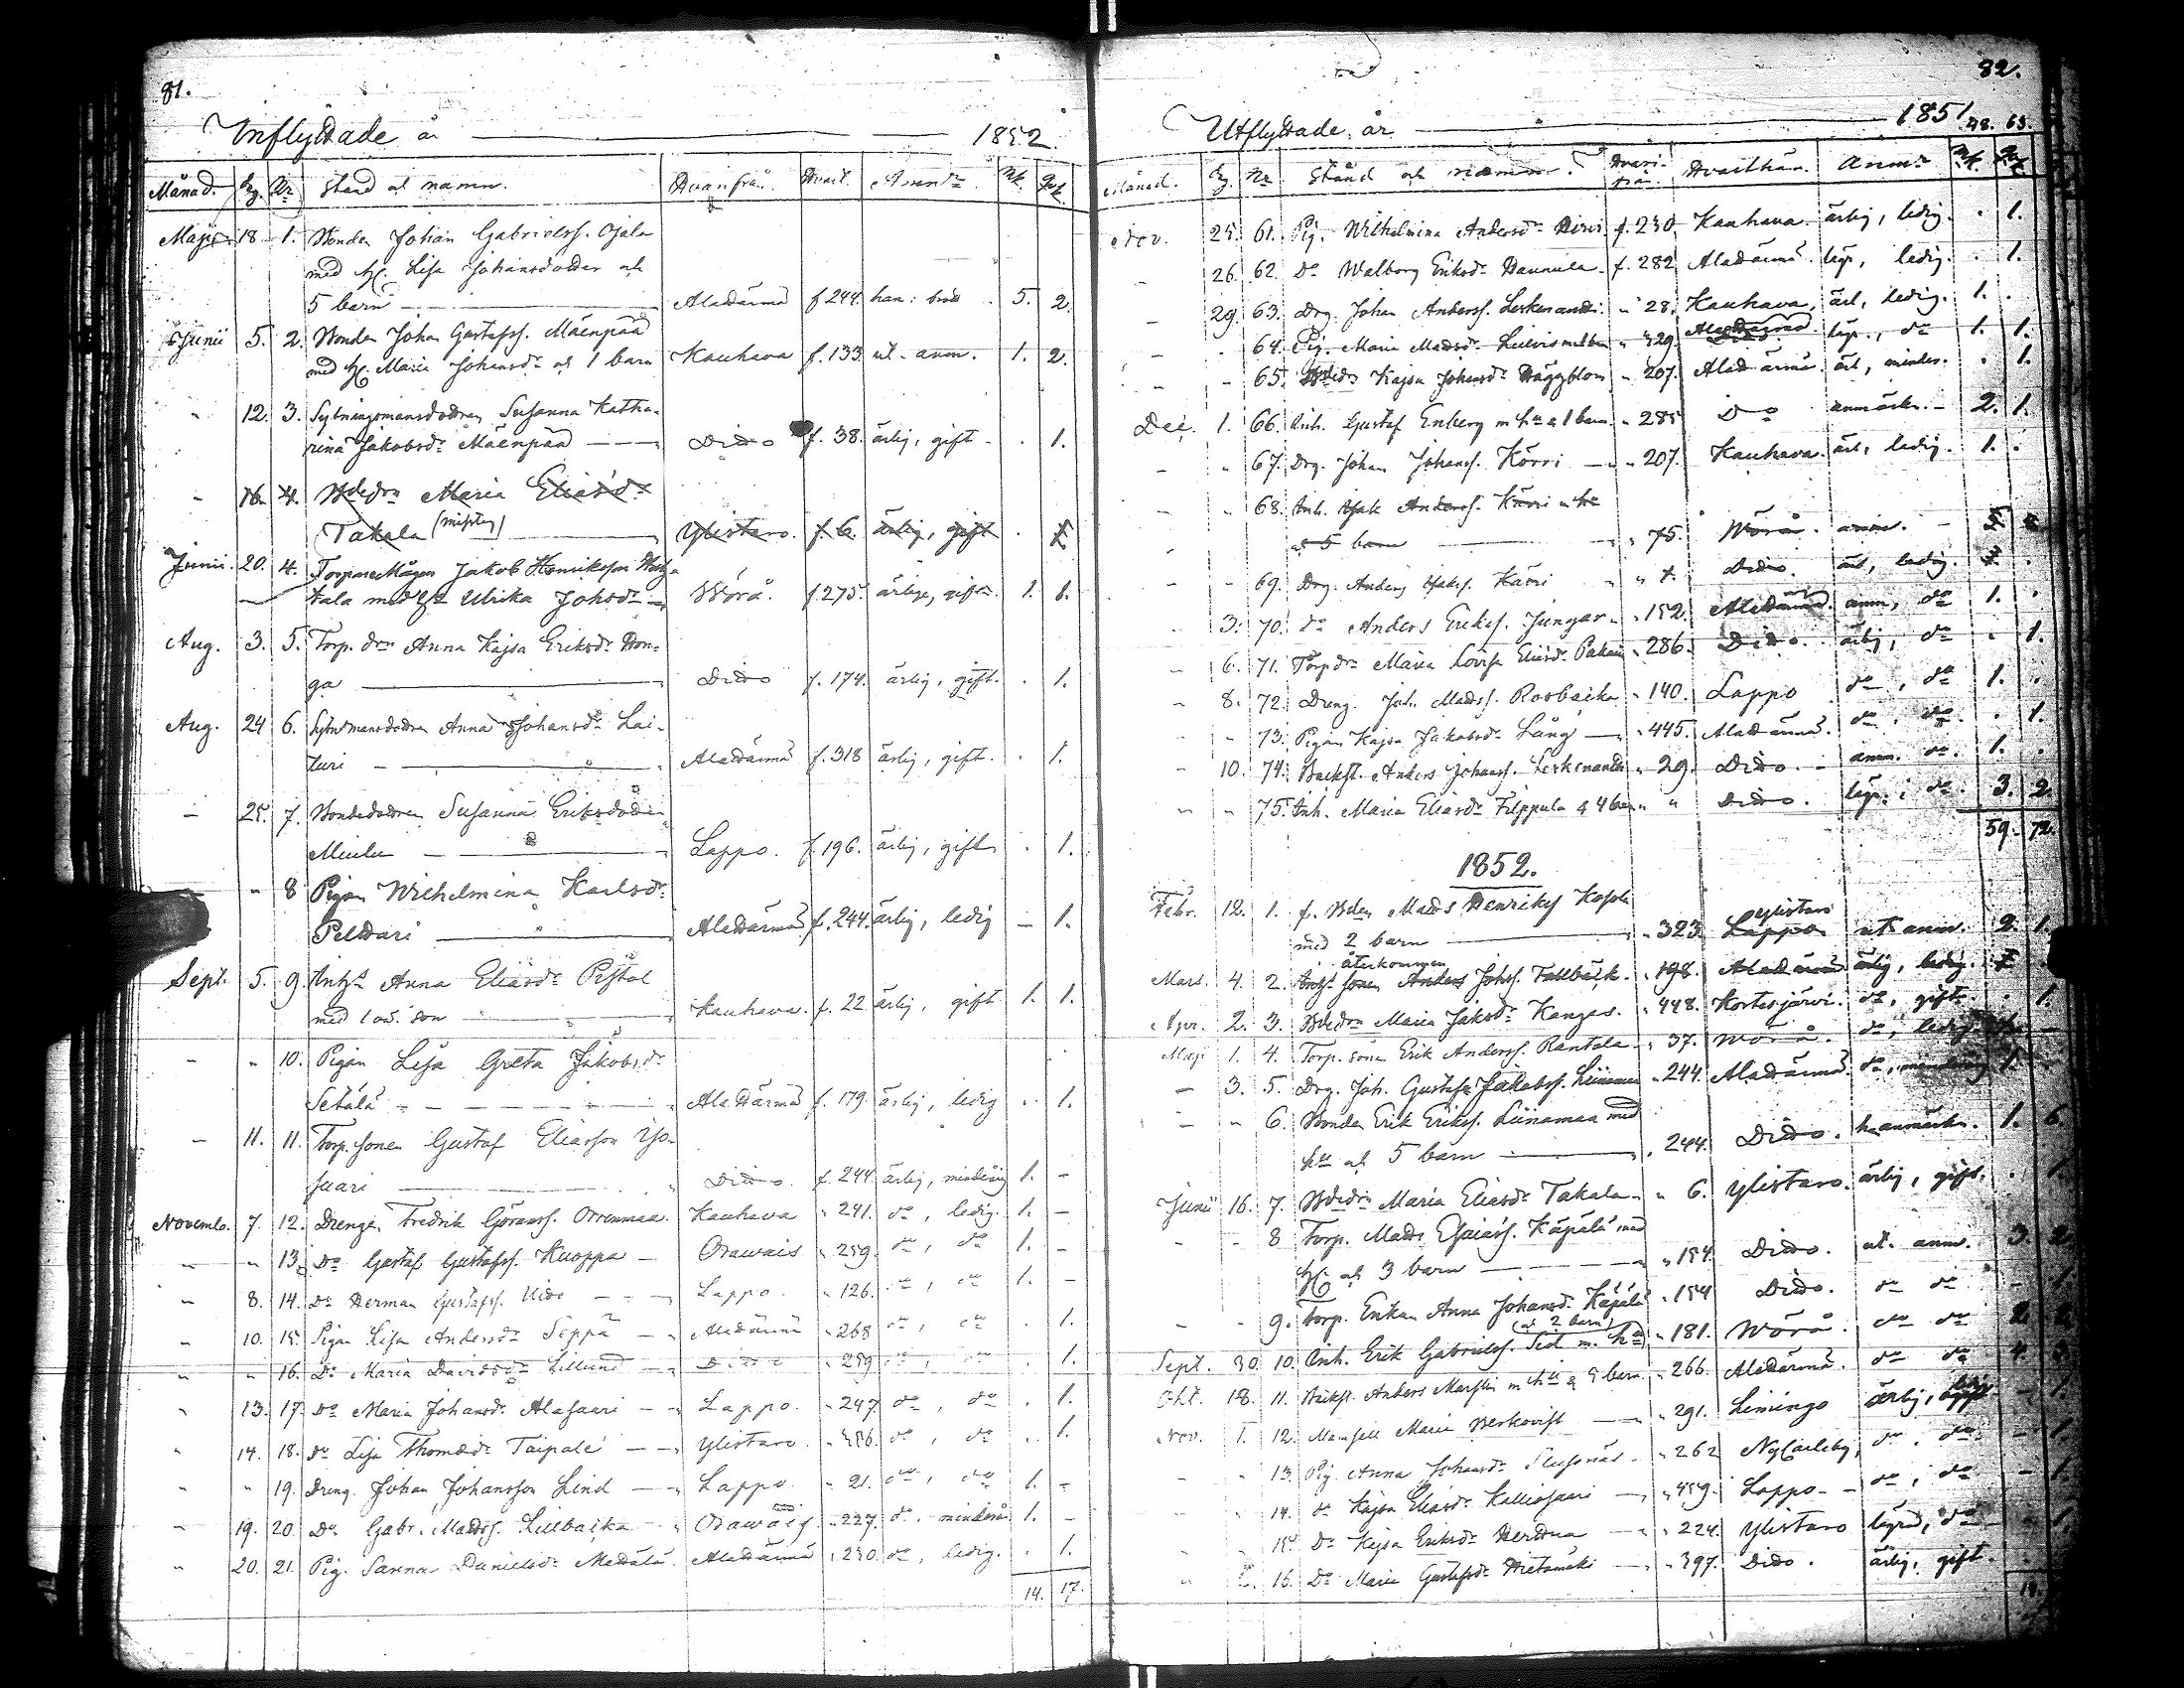 81.
Inflyttade år 1852.
Månad. Dg. Nr Stånd och namn. Hvarifrån. Hvart. Anm. Mk. Qvk.
Maji 18 1. Bonden Johan Gabrielss. Ojala
med h. Lisa Johansdotter och
5 barn Alahärmä f. 244. han: bröd 5. 2.
Junii 5. 2. Bonden Johan Gustafss. Mäenpää
med h. Maria Johansdr och 1 barn Kauhava f. 133. ut. anm. 1. 2.
" 12. 3. Sytningsmansdottren Susanna Katha-
rina Jakobsdr Mäenpää Dito f. 38. ärlig, gift . 1.
" 16. 4. Bdedrn Maria Eliasdr
Takala (mister) Ylistaro. f. 6. ärlig, gift . 1.
Junii. 20. 4. Torpare Mågen Jakob Henriksson
tala med h. Ulrika Johsdr Wörå. f. 275. ärlige, gifta. 1. 1.
Aug. 3. 5. Torp. drn Anna Kajsa Eriksdr Hon-
ga Dito f. 174. ärlig, gift. . 1.
Aug. 24 6. Sytnmansdottren Anna Johansdr Lai-
turi Alahärmä f. 318 ärlig, gift. . 1.
— 25. 7. Bondedottren Susanna Eriksdotter
Lappo. f. 196. ärlig, gift . 1.
" 8 Pigan Wilhelmina Karlsdr
Peldari Alahärmä f. 244. ärlig, ledig — 1.
Sept. 5. 9. Inhs Anna Eliasdr Pistol
med 1 oä. son Kauhava. f. 22. ärlig, gift 1. 1.
— " 10. Pigan Lisa Greta Jakobsdr
Setälä Alahärmä f. 179. ärlig, ledig . 1.
— 11. 11. Torp. sonen Gustaf Eliasson Iso-
saari Dito. f. 244. ärlig, minderårig 1. -
Novemb. 7. 12. Drengen Fredrik Göranss. Orrenmaa. Kauhava " 241. do, ledig. 1. -
" " 13. Do Gustaf Gustafss. Kuoppa — Orawais " 259. do, do 1. -
" 8. 14. Do Herman Gustafss. Lappo. " 126. do, do 1. -
" 10. 15. Pigan Lisa Andersdr Seppä — Alahärmä " 268 do, do . 1.
" " 16. Do Maria Davidsdr Lillund — Dito " 259 do, do . 1.
" 13. 17. Do Maria Johansdr Alasaari — Lappo. " 247 do, do . 1.
" 14. 18. Do Lisa Thomasdr Taipale — Ylistaro. " 356. do, do . 1.
" " 19. Dreng. Johan Johansson Lind — Lappo. " 21. do, do 1. -
" 19. 20. Do Gabr. Madss. Lillbacka — Orawais. " 227. do. minderår 1. -
" 20. 21. Pig. Sanna Danielsdr Alahärmä " 230. do, ledig. . 1.
14. 17.
82.
Utflyttade år 1851
48. 63.
Månad. Dg. Nr Stånd och namn. Hvarifrån. Hvarthän. Anm. Mk. Qvk.
Nov. 25. 61. Pig. Wilhelmina Andersdr f. 230 Kauhava. ärlig, ledig. . 1.
— 26. 62. Do Walborg Eriksdr Hannula. f. 282 Alahärmä. läg., ledig. . 1.
— 29. 63. Drg. Johan Anderss. " 28. Kauhava. ärl, ledig. 1. .
— " 64. Pig. Maria Madsdr " 329. Alahärmä. läg., do 1. 1.
— " 65. Kajsa Johansdr Häggblom " 207. Alahärmä. ärl, minder. . 1.
Dec. 1. 66. Inh. Gustaf Enberg m. hu & 1 barn. " 285 Do anmärkn. - 2. 1.
— " 67. Drg. Johan Johanss. Körri — " 207. Kauhava. ärl, ledig. 1. .
" 68. Inh. Isak Anderss. Kärri m. hu
och 5 barn " 75. Wörå. anm.
— " 69. Drg. Anders Isakss. Kärri " " Dito. ärl, ledig.
3. 70. do Anders Erikss. Jungar " 152. Alahärmä. anm, do 1. .
" 6. 71. Torpdr Maria Lovisa Eliasdr " 286. Dito. ärlig, do . 1.
" 8. 72. Dreng. Joh. Madss. Rossbacka " 140. Lappo do, do 1. .
" 73. Pigan Kajsa Jakobsdr Lång — " 445. Alahärmä. do. do. . 1.
— 10. 74. Backst. Anders Johanss. " 29. Dito. — anm. do. 1. .
" " 75. Inh. Maria Eliasdr Filppula & 4 barn " " Dito. läg. i do. 3. 2.
59. 72.
1852.
Febr. 12. 1. f. Bden Mads Henrikss
med 2 barn " 323. Ylistaro Lappo ut anm. 2. 1.
återkommen
Mars. 4. 2. sonen Anders Johss. Fallbäck. " 198. Alahärmä ärlig, ledig. 1 .
Apr. 2. 3. Bdedrn Maria Jaksdr Kangas. " 448. Kortesjärvi. do, gift . 1.
Maji 1. 4. Torp. sonen Erik Anderss. Rantala " 37. Wörå. do, ledig
— 3. 5. Drg. Joh. Gustaf Jakobss. Liinamaa " 244. Alahärmä. do, minderårig 1.
— " 6. Bonden Erik Erikss. Liinamaa med
hu och 5 barn " 244. Dito. h. anmärkn. 1. 6.
Junii 16. 7. Bdedrn Maria Eliasdr Takala " 6. Ylistaro. ärlig, gift. . 1.
" " 8 Torp. Mads Esaiass. Käpälä med
h. och 3 barn " 154. Dito. ut. anm. 3. 2.
" " 9. Torp. Enkan Anna Johansd. Käpälä " 154 Dito. do do - 1.
(och 2 barn)
Sept. 30. 10. Inh. Erik Gabrielss. Sid m. hu " 181. Wörå. do do 2. 2.
Okt. 18. 11. Backst. Anders m hu & 4 barn " 266. Alahärmä. do do 4.
Nov. 1. 12. Mamsell Maria — " 291. Limingo ärlig, ledig 1.
" " 13. Pig. Anna Johansdr Slusnäs " 262 NyCarleby, do, do - 1.
" " 14. do Kajsa Eliasdr Kalliosaari — " 459. Lappo - do, do - 1.
" " 15. Do Kajsa Eriksdr — " 224. Ylistaro lägrad, do - 1.
" 2. 16. Do Maria Gustafsdr Hietamäki — " 397. Dito. ärlig, gift.